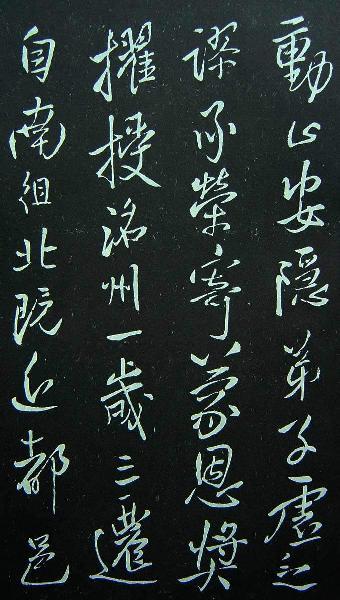 動止安隱弟子虛乏
謬承榮寄蒙恩奬
擢授洺州一歲三遷
自南徂北既近都邑